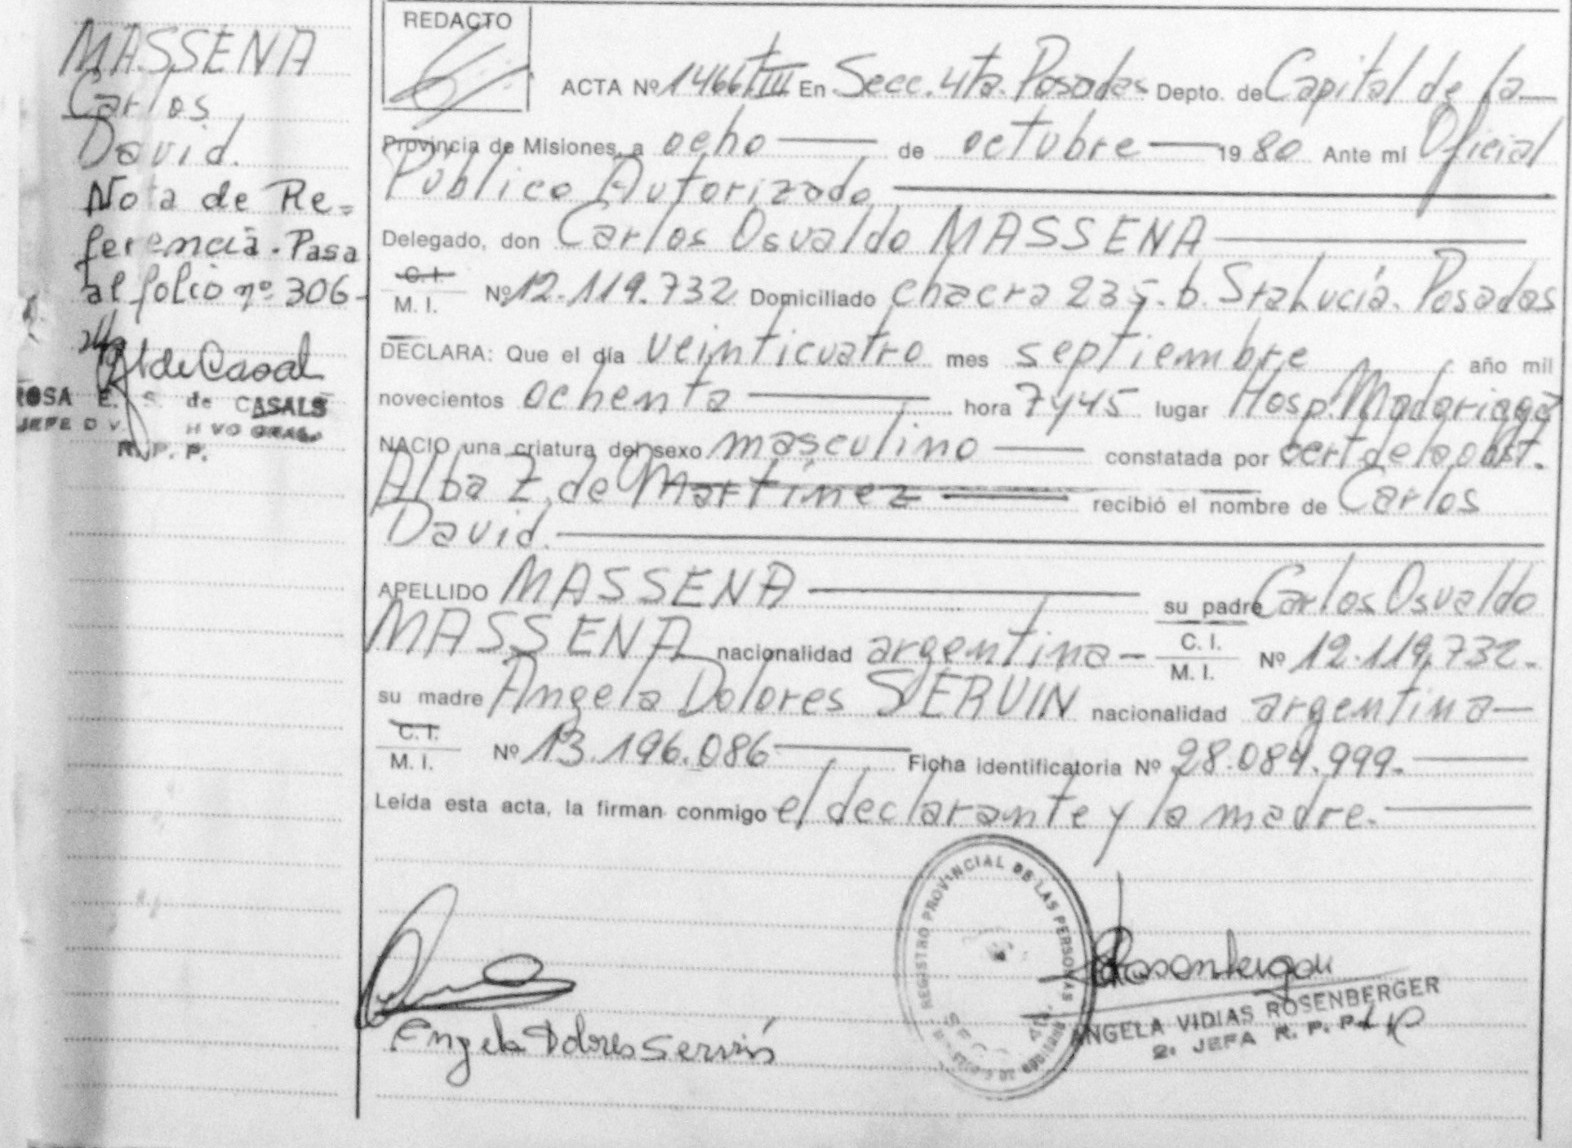 MASSENA
Carlos
David.
Nota de Re=
ferencia. Pasa
al folio nº 306-
ROSA E. S. de CASALS
R. P. P.
REDACTO
ACTA Nº 1466 TIII En Secc. 4ta. Posadas Depto. de Capital de la
Provincia de Misiones, a ocho de octubre 1980 Ante mi Oficial
Público Autorizado
Delegado, don Carlos Osvaldo MASSENA
C. I.
M. I. Nº 12.119.732 Domiciliado chacra 235. b. Sta Lucía. Posadas
DECLARA: Que el día veinticuatro mes septiembre año mil
novecientos ochenta hora 7y45 lugar Hosp. Madariaga
NACIO una criatura del sexo masculino constatada por cert de la obst.
Alba Z. de Martínez recibió el nombre de Carlos
David.
APELLIDO MASSENA su padre Carlos Osvaldo
MASSENA nacionalidad argentina - C. I. M. I. Nº 12.119.732.
su madre Angela Dolores SERVIN nacionalidad argentina
C. I.
M. I. Nº 13.196.086 Ficha identificatoria Nº 28.084.999.
Leída esta acta, la firman conmigo el declarante y la madre.
REGISTRO PROVINCIAL DE LAS PERSONAS
Angela Dolores Servín
ANGELA VIDIAS ROSENBERGER
2. JEFA R. P. P.